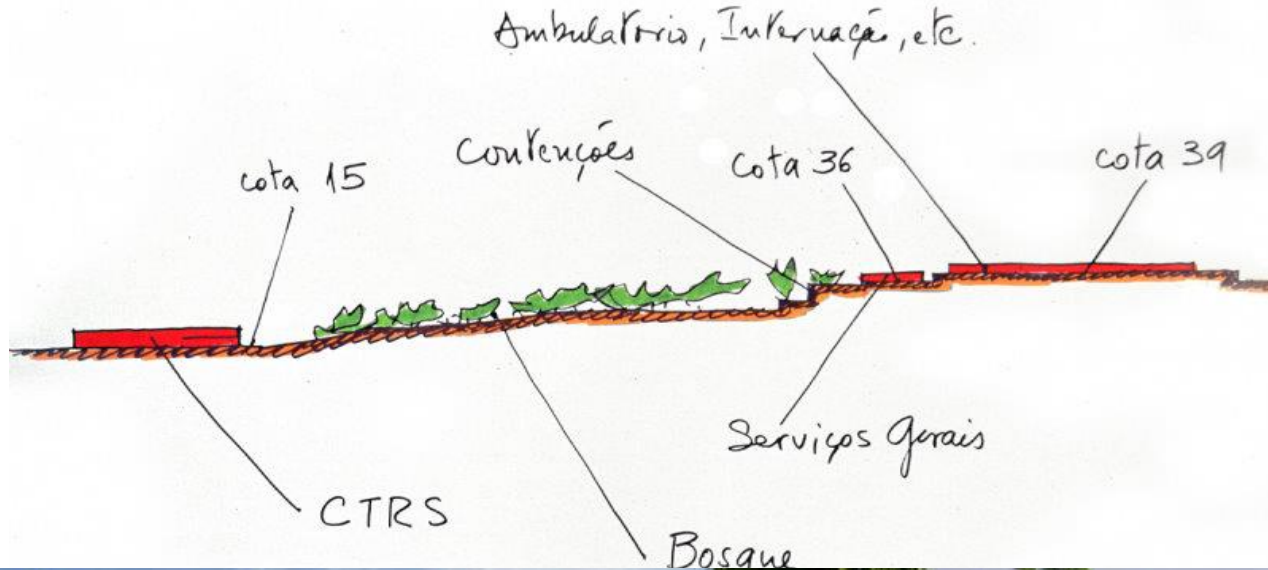 Ambulatorio, Internação, etc.
Contenções
cota 36
cota 39
cota 15
Serviços Gerais
CTRS
Bosque